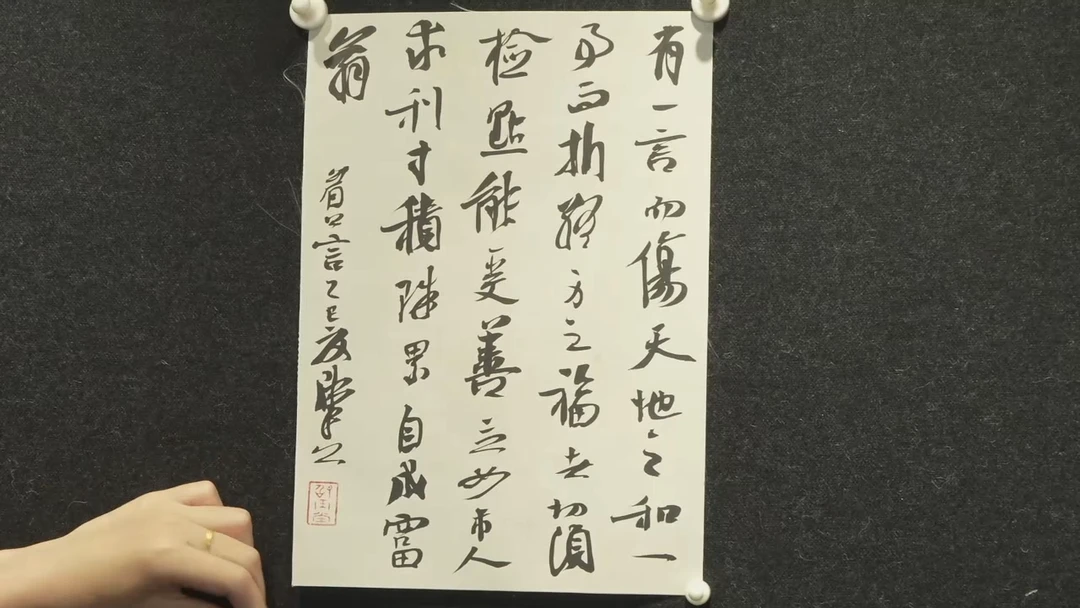 有一言而傷天地之和一
事而折終身之福者切須
检點能受善言如市人
求利寸積銖累自成富
翁
眉公言乙巳夜